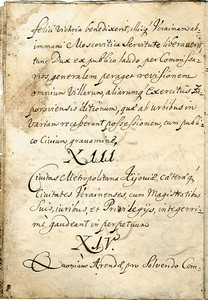 felici Victoria benedixerit, illisq; Vcrainam ab im-
mani Moscovitica Servitute liberaverit
tunc Dux ex publico laudo per Comissa-
rios, generalem peraget revisionem
omnium Villarum, aliarumq; Exercitus Za-
poroviensis ditionum, quæ ab arbitris in
Variam receperunt possessionem, cum publi-
co Civium gravamine.
XIII
Civitas Metropolitana Kijoviæ, cateræq;
Civitates Vcrainenses, cum Magistratibus
Suis, iuribus, et Privilegijs, integerri-
me gaudeant in perpetuum
XIV.
Quoniam Arendæ pro Solvendo Com-